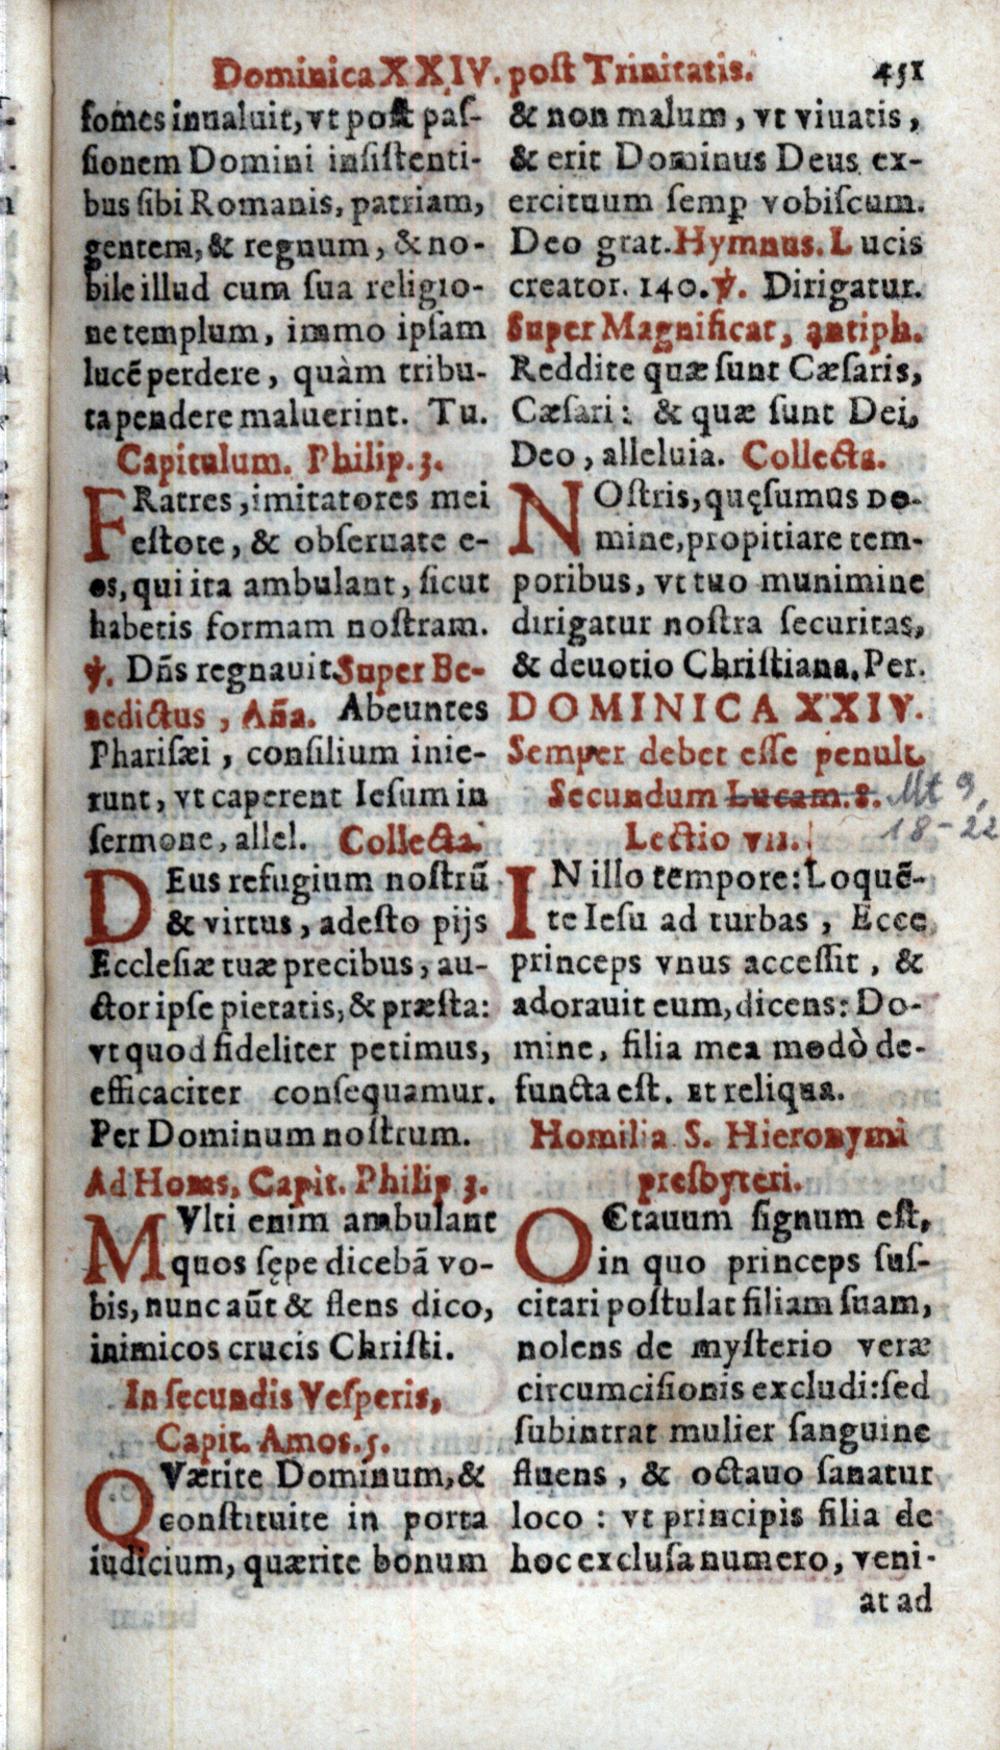 Dominica XXIV. poſt Trinitatis. 451
fomes inualuit, vt poſt paſ-
ſionem Domini inſiſtenti-
bus ſibi Romanis, patriam,
gentem, & regnum, & no-
bile illud cum ſua religio-
ne templum, immo ipſam
lucē perdere, quàm tribu-
ta pendere maluerint. Tu.
Capitulum. Philip. 3.
FRatres, imitatores mei
eſtote, & obſeruate e-
os, qui ita ambulant, ſicut
habetis formam noſtram.
℣. Dñs regnauit. Super Be-
nedictus, Aña. Abeuntes
Phariſæi, conſilium inie-
runt, vt caperent Ieſum in
ſermone, allel. Collecta.
DEus refugium noſtrū
& virtus, adeſto pijs
Eccleſiæ tuæ precibus, au-
ctor ipſe pietatis, & præſta:
vt quod fideliter petimus,
efficaciter conſequamur.
Per Dominum noſtrum.
Ad Horas, Capit. Philip 3.
MVlti enim ambulant
quos ſępe dicebā vo-
bis, nunc aūt & flens dico,
inimicos crucis Chriſti.
In ſecundis Veſperis,
Capit. Amos. 5.
QVærite Dominum, &
conſtituite in porta
iudicium, quærite bonum
& non malum, vt viuatis,
& erit Dominus Deus ex-
ercituum ſemꝑ vobiſcum.
Deo grat. Hymnus. Lucis
creator. 140. ℣. Dirigatur.
Super Magnificat, antiph.
Reddite quæ ſunt Cæſaris,
Cæſari: & quæ ſunt Dei,
Deo, alleluia. Collecta.
NOſtris, quęſumus Do-
mine, propitiare tem-
poribus, vt tuo munimine
dirigatur noſtra ſecuritas,
& deuotio Chriſtiana. Per.
DOMINICA XXIV.
Semper debet eſſe penult.
Secundum Lucam. 8. Mt 9,
18-22
Lectio vii.
IN illo tempore: Loquē-
te Ieſu ad turbas, Ecce
princeps vnus acceſſit, &
adorauit eum, dicens: Do-
mine, filia mea modò de-
functa eſt. Et reliqua.
Homilia S. Hieronymi
presbyteri.
OCtauum ſignum eſt,
in quo princeps ſuſ-
citari poſtulat filiam ſuam,
nolens de myſterio veræ
circumciſionis excludi: ſed
ſubintrat mulier ſanguine
fluens, & octauo ſanatur
loco: vt principis filia de
hoc excluſa numero, veni-
at ad